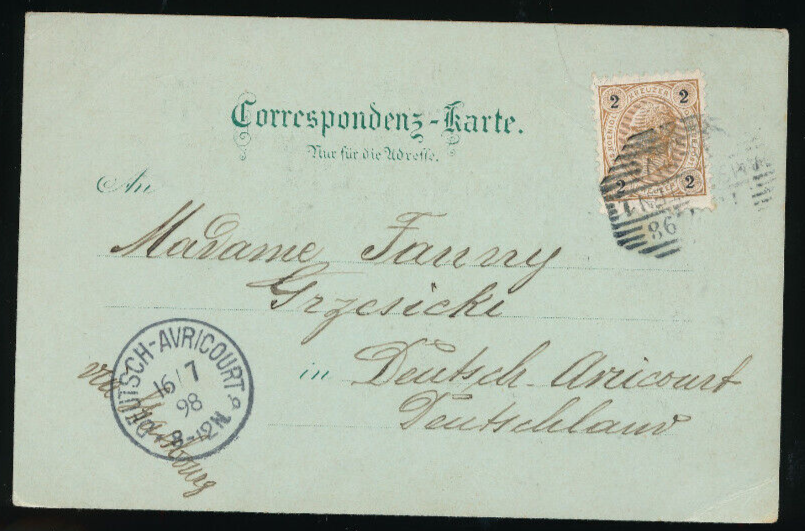 Correspondenz-Karte.
Nur für die Adresse.
2 KREUZER 2
2 2
An
Madame Fanny
Grzesicki
in Deutsch-Avricourt
Deutschland
via Strassburg
DEUTSCH-AVRICOURT
16/7
98
8-12N
98